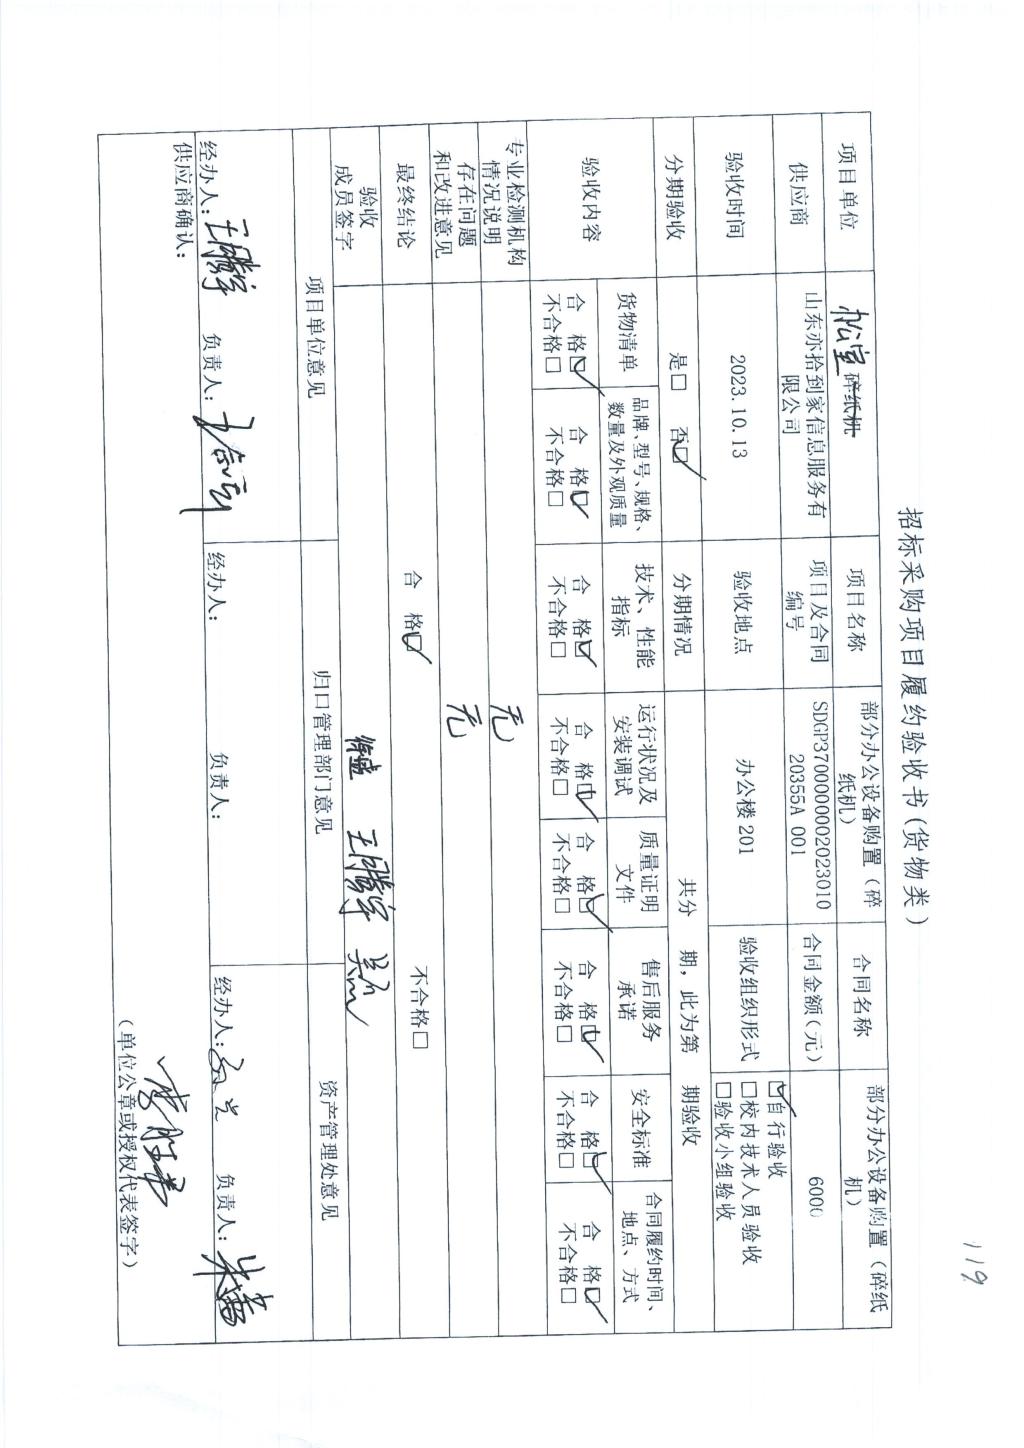 119
招标采购项目履约验收书(货物类)
项目单位
碎纸机
项目名称
部分办公设备购置（碎
纸机）
合同名称
部分办公设备购置（碎纸
机）
供应商
山东亦拾到家信息服务有
限公司
项目及合同
编号
SDGP370000000202302010
20355A 001
合同金额(元)
6000
验收时间
2023.10.13
验收地点
办公楼201
验收组织形式
☑自行验收
□校内技术人员验收
□验收小组验收
分期验收
是□ 否☑
分期情况
共分 期，此为第 期验收
验收内容
货物清单
品牌、型号、规格、
数量及外观质量
技术、性能
指标
运行状况及
安装调试
质量证明
文件
售后服务
承诺
安全标准
合同履约时间、
地点、方式
合 格☑
不合格□
合 格☑
不合格□
合 格☑
不合格□
合 格☑
不合格□
合 格☑
不合格□
合 格☑
不合格□
合 格☑
不合格□
合 格☑
不合格□
专业检测机构
情况说明
无
存在问题
和改进意见
无
最终结论
合 格☑
不合格□
验收
成员签字
项目单位意见
归口管理部门意见
资产管理处意见
经办人:
负责人:
经办人:
负责人:
经办人:
负责人:
供应商确认:
(单位公章或授权代表签字)